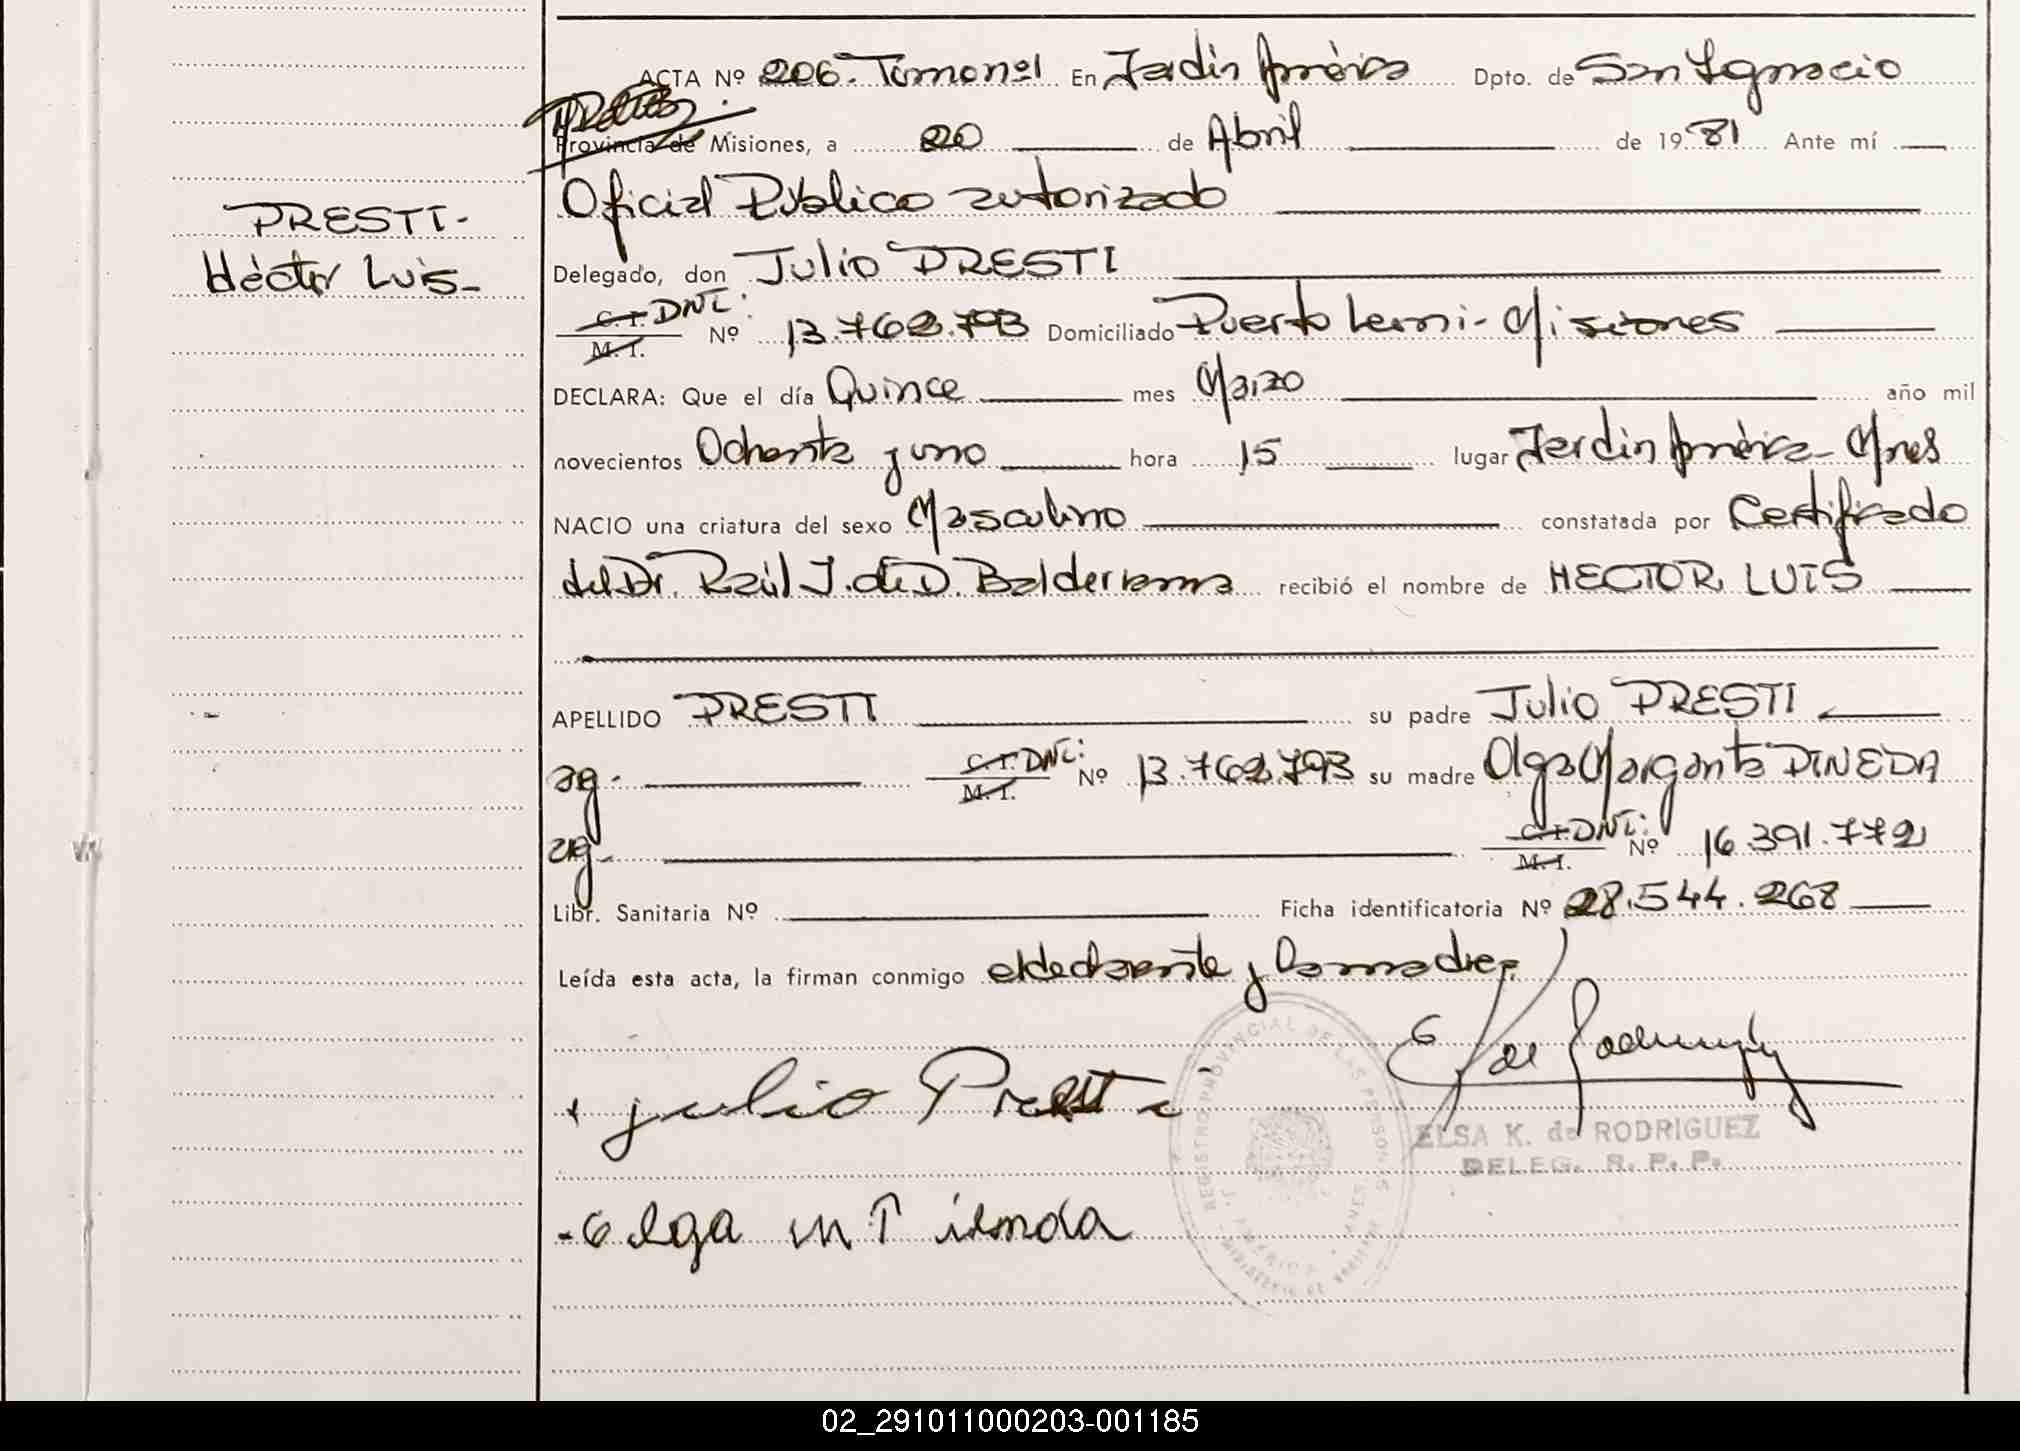 ACTA Nº 206. Tomo nº1 En Jardín América Dpto. de San Ignacio
Provincia de Misiones, a 20 de Abril de 1981 Ante mí
Oficial Público autorizado
PRESTI-
Héctor Luis-
Delegado, don Julio PRESTI
C.I. DNI:
M.I. Nº 13.762.793 Domiciliado Puerto Leoni-Misiones
DECLARA: Que el día Quince mes Marzo año mil
novecientos Ochenta y uno hora 15 lugar Jardín América-Mnes
NACIO una criatura del sexo Masculino constatada por Certificado
del Dr. Raúl J. de D. Balderrama recibió el nombre de HECTOR LUIS
APELLIDO PRESTI su padre Julio PRESTI
arg.- C.I. DNI: M.I. Nº 13.762.793 su madre Olga Margarita PINEDA
arg.- C.I. DNI: M.I. Nº 16.391.772
Libr. Sanitaria Nº Ficha identificatoria Nº 28.544.268
Leída esta acta, la firman conmigo el declarante y la madre.
julio Presti
ELSA K. de RODRIGUEZ
DELEG. R. P. P.
REGISTRO PROVINCIAL DE LAS PERSONAS
Olga m P ineda
02_291011000203-001185